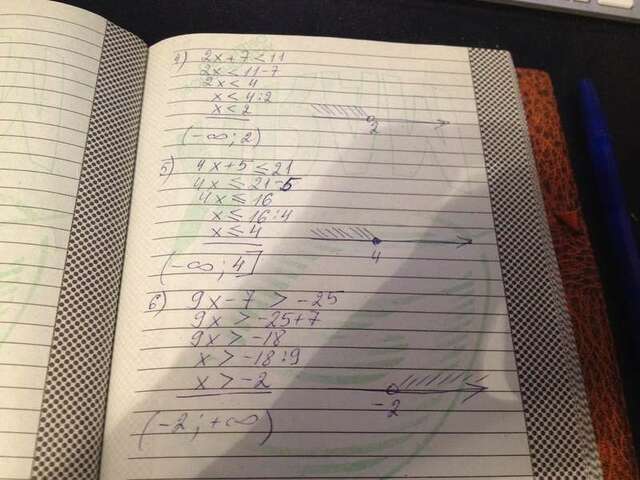 4) 2x+7<11
2x<11-7
2x<4
x<4:2
x<2
2
(-∞; 2)
5) 4x+5≤21
4x≤21-5
4x≤16
x≤16:4
x≤4
4
(-∞; 4]
6) 9x-7>-25
9x>-25+7
9x>-18
x>-18:9
x>-2
-2
(-2; +∞)